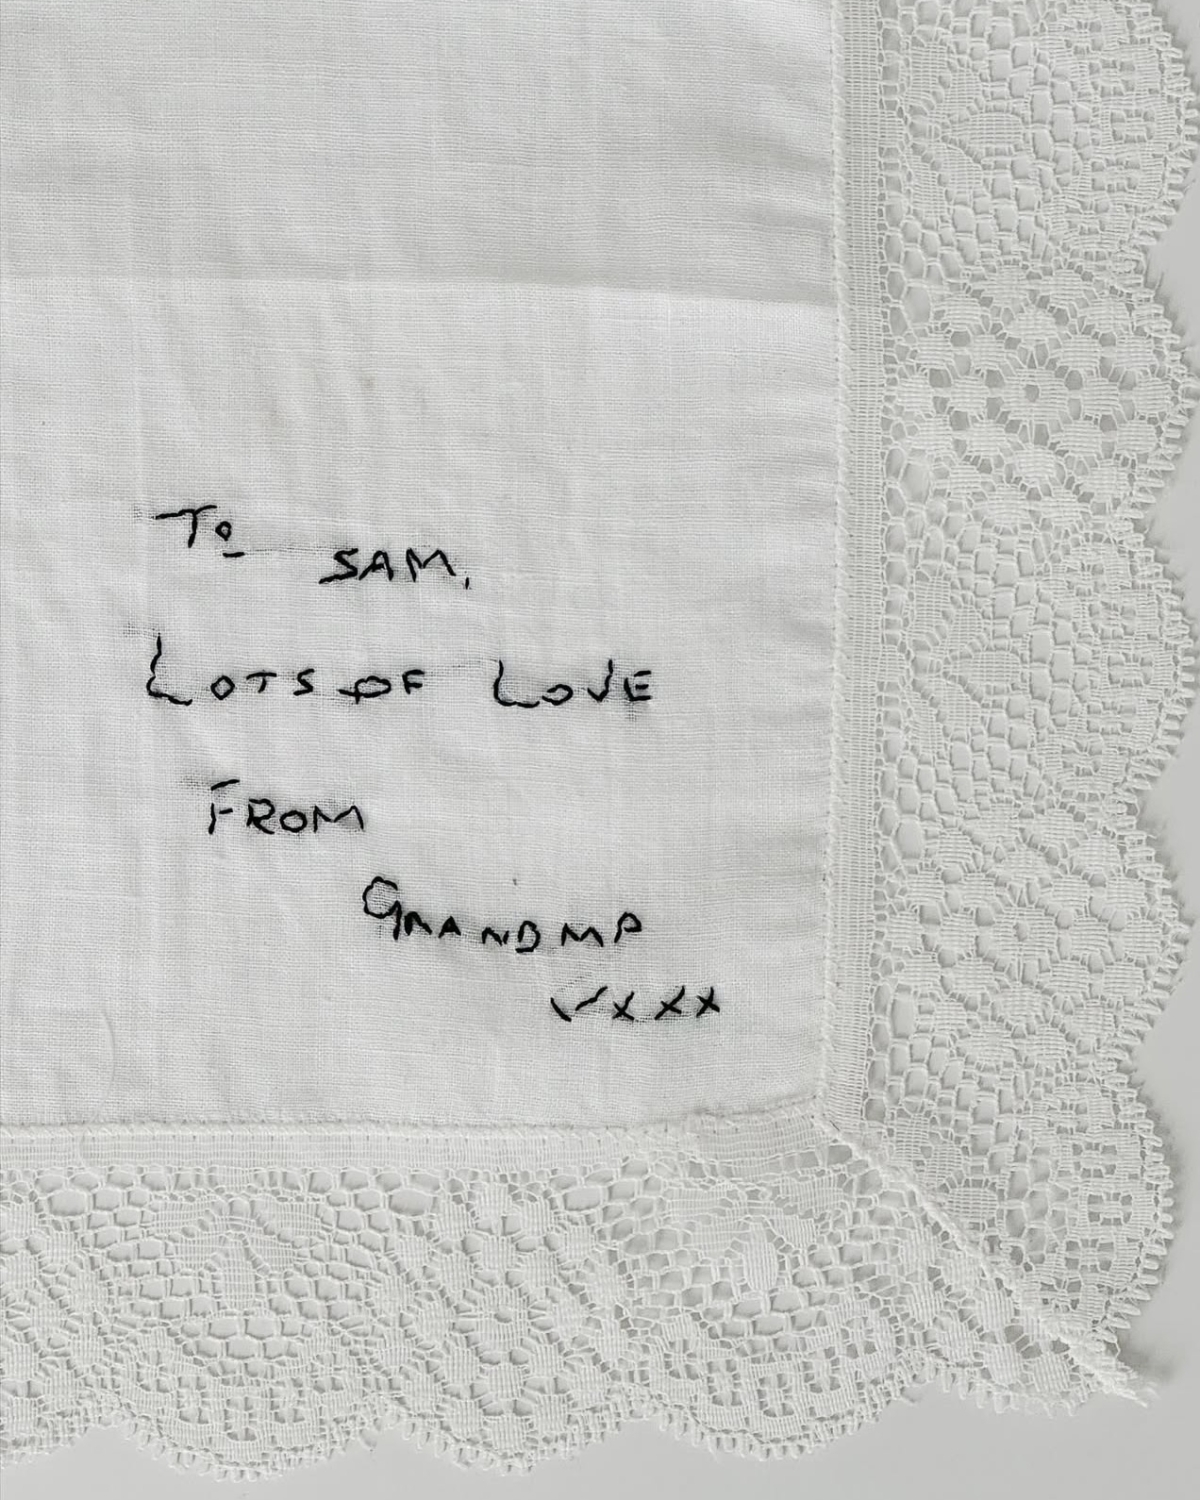 To SAM,
LOTS OF LOVE
FROM
GRANDMA
xxxx